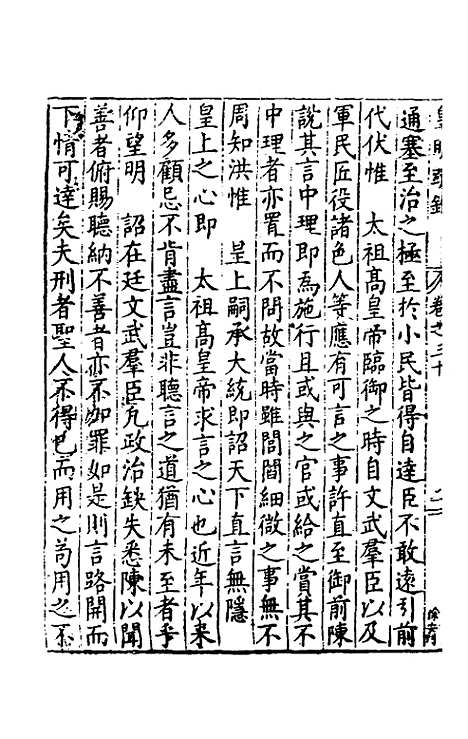 皇明疏鈔 卷之三十
通塞至治之極至於小民皆得自達臣不敢遠引前
代伏惟 太祖高皇帝臨御之時自文武羣臣以及
軍民匠役諸色人等應有可言之事許直至御前陳
說其言中理即爲施行且或與之官或給之賞其不
中理者亦置而不問故當時雖閭閻細微之事無不
周知洪惟 皇上嗣承大統即詔天下直言無隱
皇上之心即 太祖高皇帝求言之心也近年以來
人多顧忌不肯盡言豈非聽言之道猶有未至者乎
仰望明 詔在廷文武羣臣凢政治缺失悉陳以聞
善者俯賜聽納不善者亦不加罪如是則言路開而
下情可達矣夫刑者聖人不得已而用之苟用之不